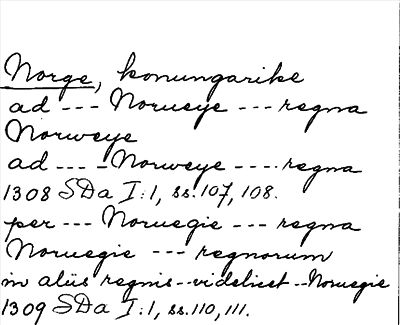 Norge, konungarike
ad --- Norueye --- regna
Norweye
ad --- -Norweye ---- regna
1308 SDa I:1, ss.107, 108.
per --- Noruegie --- regna
Noruegie --- regnorum
in aliis regnis--videlicet--Noruegie
1309 SDa I:1, ss.110, 111.